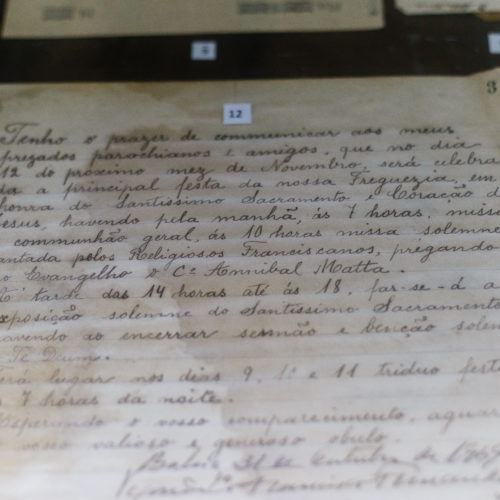 9
3
12
Tenho o prazer de communicar aos meus
prezados parochianos e amigos, que no dia
12 do proximo mez de Novembro, será celebra
da a principal festa da nossa Freguezia, em
honra do Santissimo Sacramento e Coração d
esus, havendo pela manhã, ás 7 horas, missa
communhão geral, ás 10 horas missa solemne
antada pelos Religiosos Franciscanos, prégando
ao Evangelho o Cº Annibal Matta.
tarde das 14 horas até ás 18, far-se-á a
exposição solemne do Santissimo Sacramento
havendo ao encerrar sermão e benção solem
Te Deum.
erá lugar nos dias 9, 1º e 11 triduo festi
ás 7 horas da noite.
Esperando o vosso comparecimento, aguar
vosso valioso e generoso obulo.
Bahia, 31 de Outubro de
Francisco